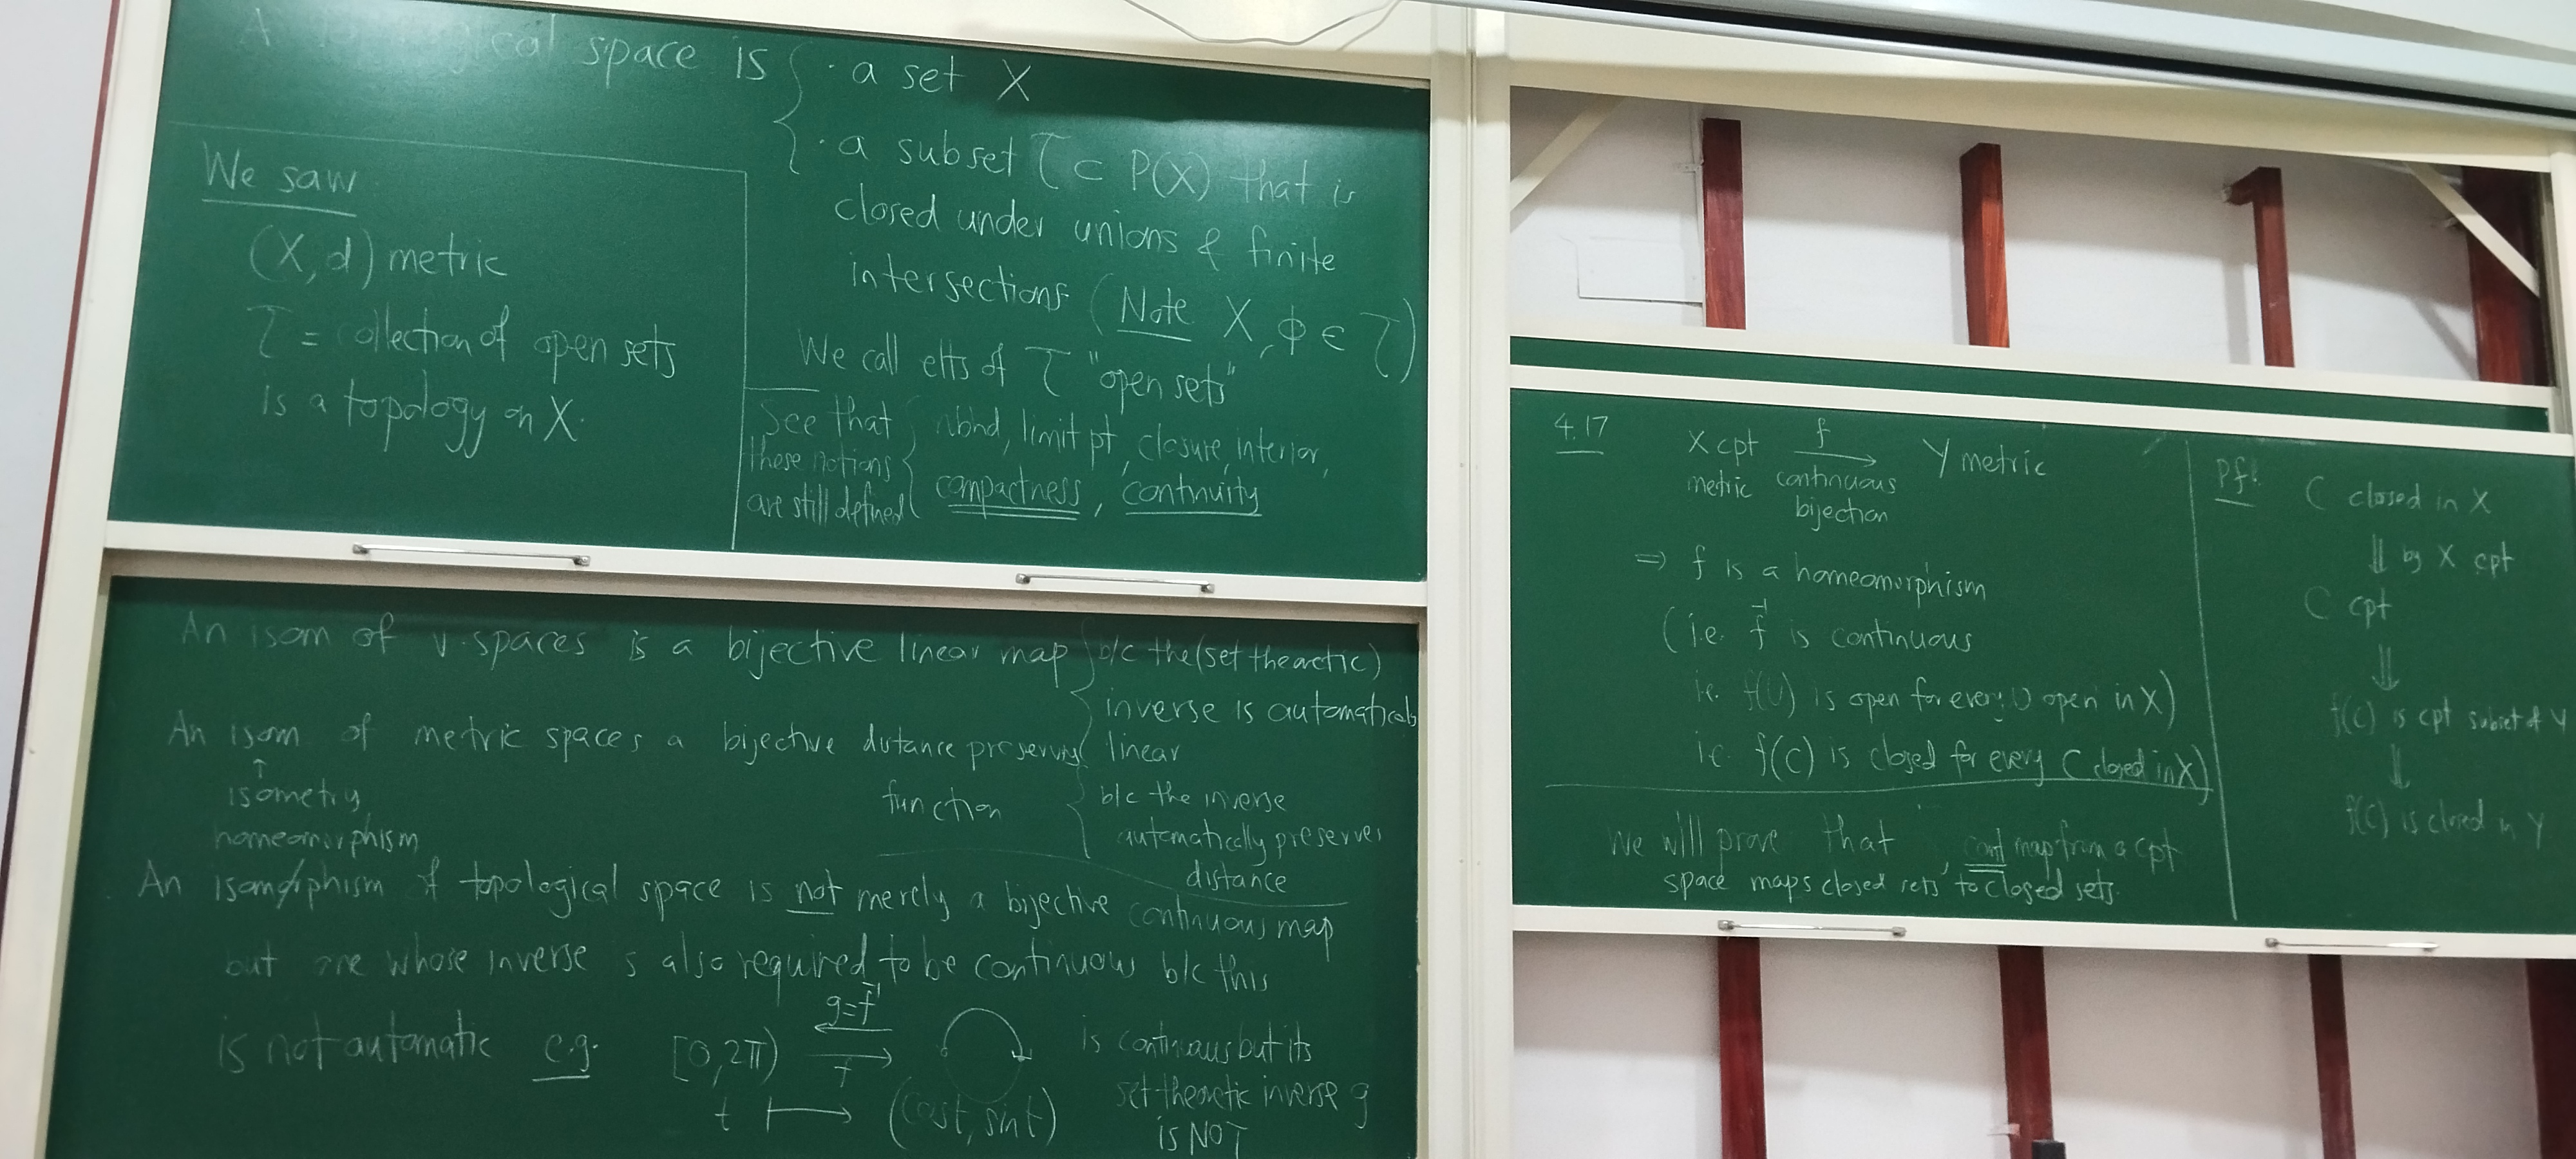 A topological space is { · a set X
· a subset τ ⊂ P(X) that is
closed under unions & finite
intersections (Note X, ϕ ∈ τ)
We call elts of τ "open sets"
We saw
(X,d) metric
τ = collection of open sets
is a topology on X.
See that
these notions
are still defined
{ nbhd, limit pt, closure, interior,
compactness, continuity
An isom of v.spaces is a bijective linear map { b/c the (set thearctic)
inverse is automatically
linear
An isom of metric spaces a bijective distance preserving
function
↑
isometry
{ b/c the inverse
automatically preserves
distance
homeomorphism
An isomorphism of topological space is not merely a bijective continuous map
but one whose inverse is also required to be continuous b/c this
is not automatic e.g. [0,2π) ⇄ is continuous but its
g=f⁻¹
f
t ↦ (cost, sint) set theoretic inverse g
is NOT
4.17 X cpt f→ Y metric
metric continuous
bijection
⇒ f is a homeomorphism
(i.e. f⁻¹ is continuous
i.e. f(U) is open for every U open in X)
i.e. f(C) is closed for every C closed in X)
We will prove that cont map from a cpt
space maps closed sets to closed sets.
Pf! C closed in X
⇓ by X cpt
C cpt
⇓
f(C) is cpt subset of Y
⇓
f(C) is closed in Y